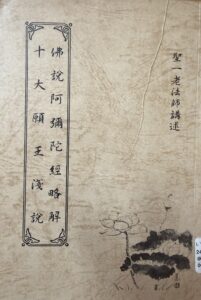 聖一老法師講述
佛說阿彌陀經略解
十大願王淺說